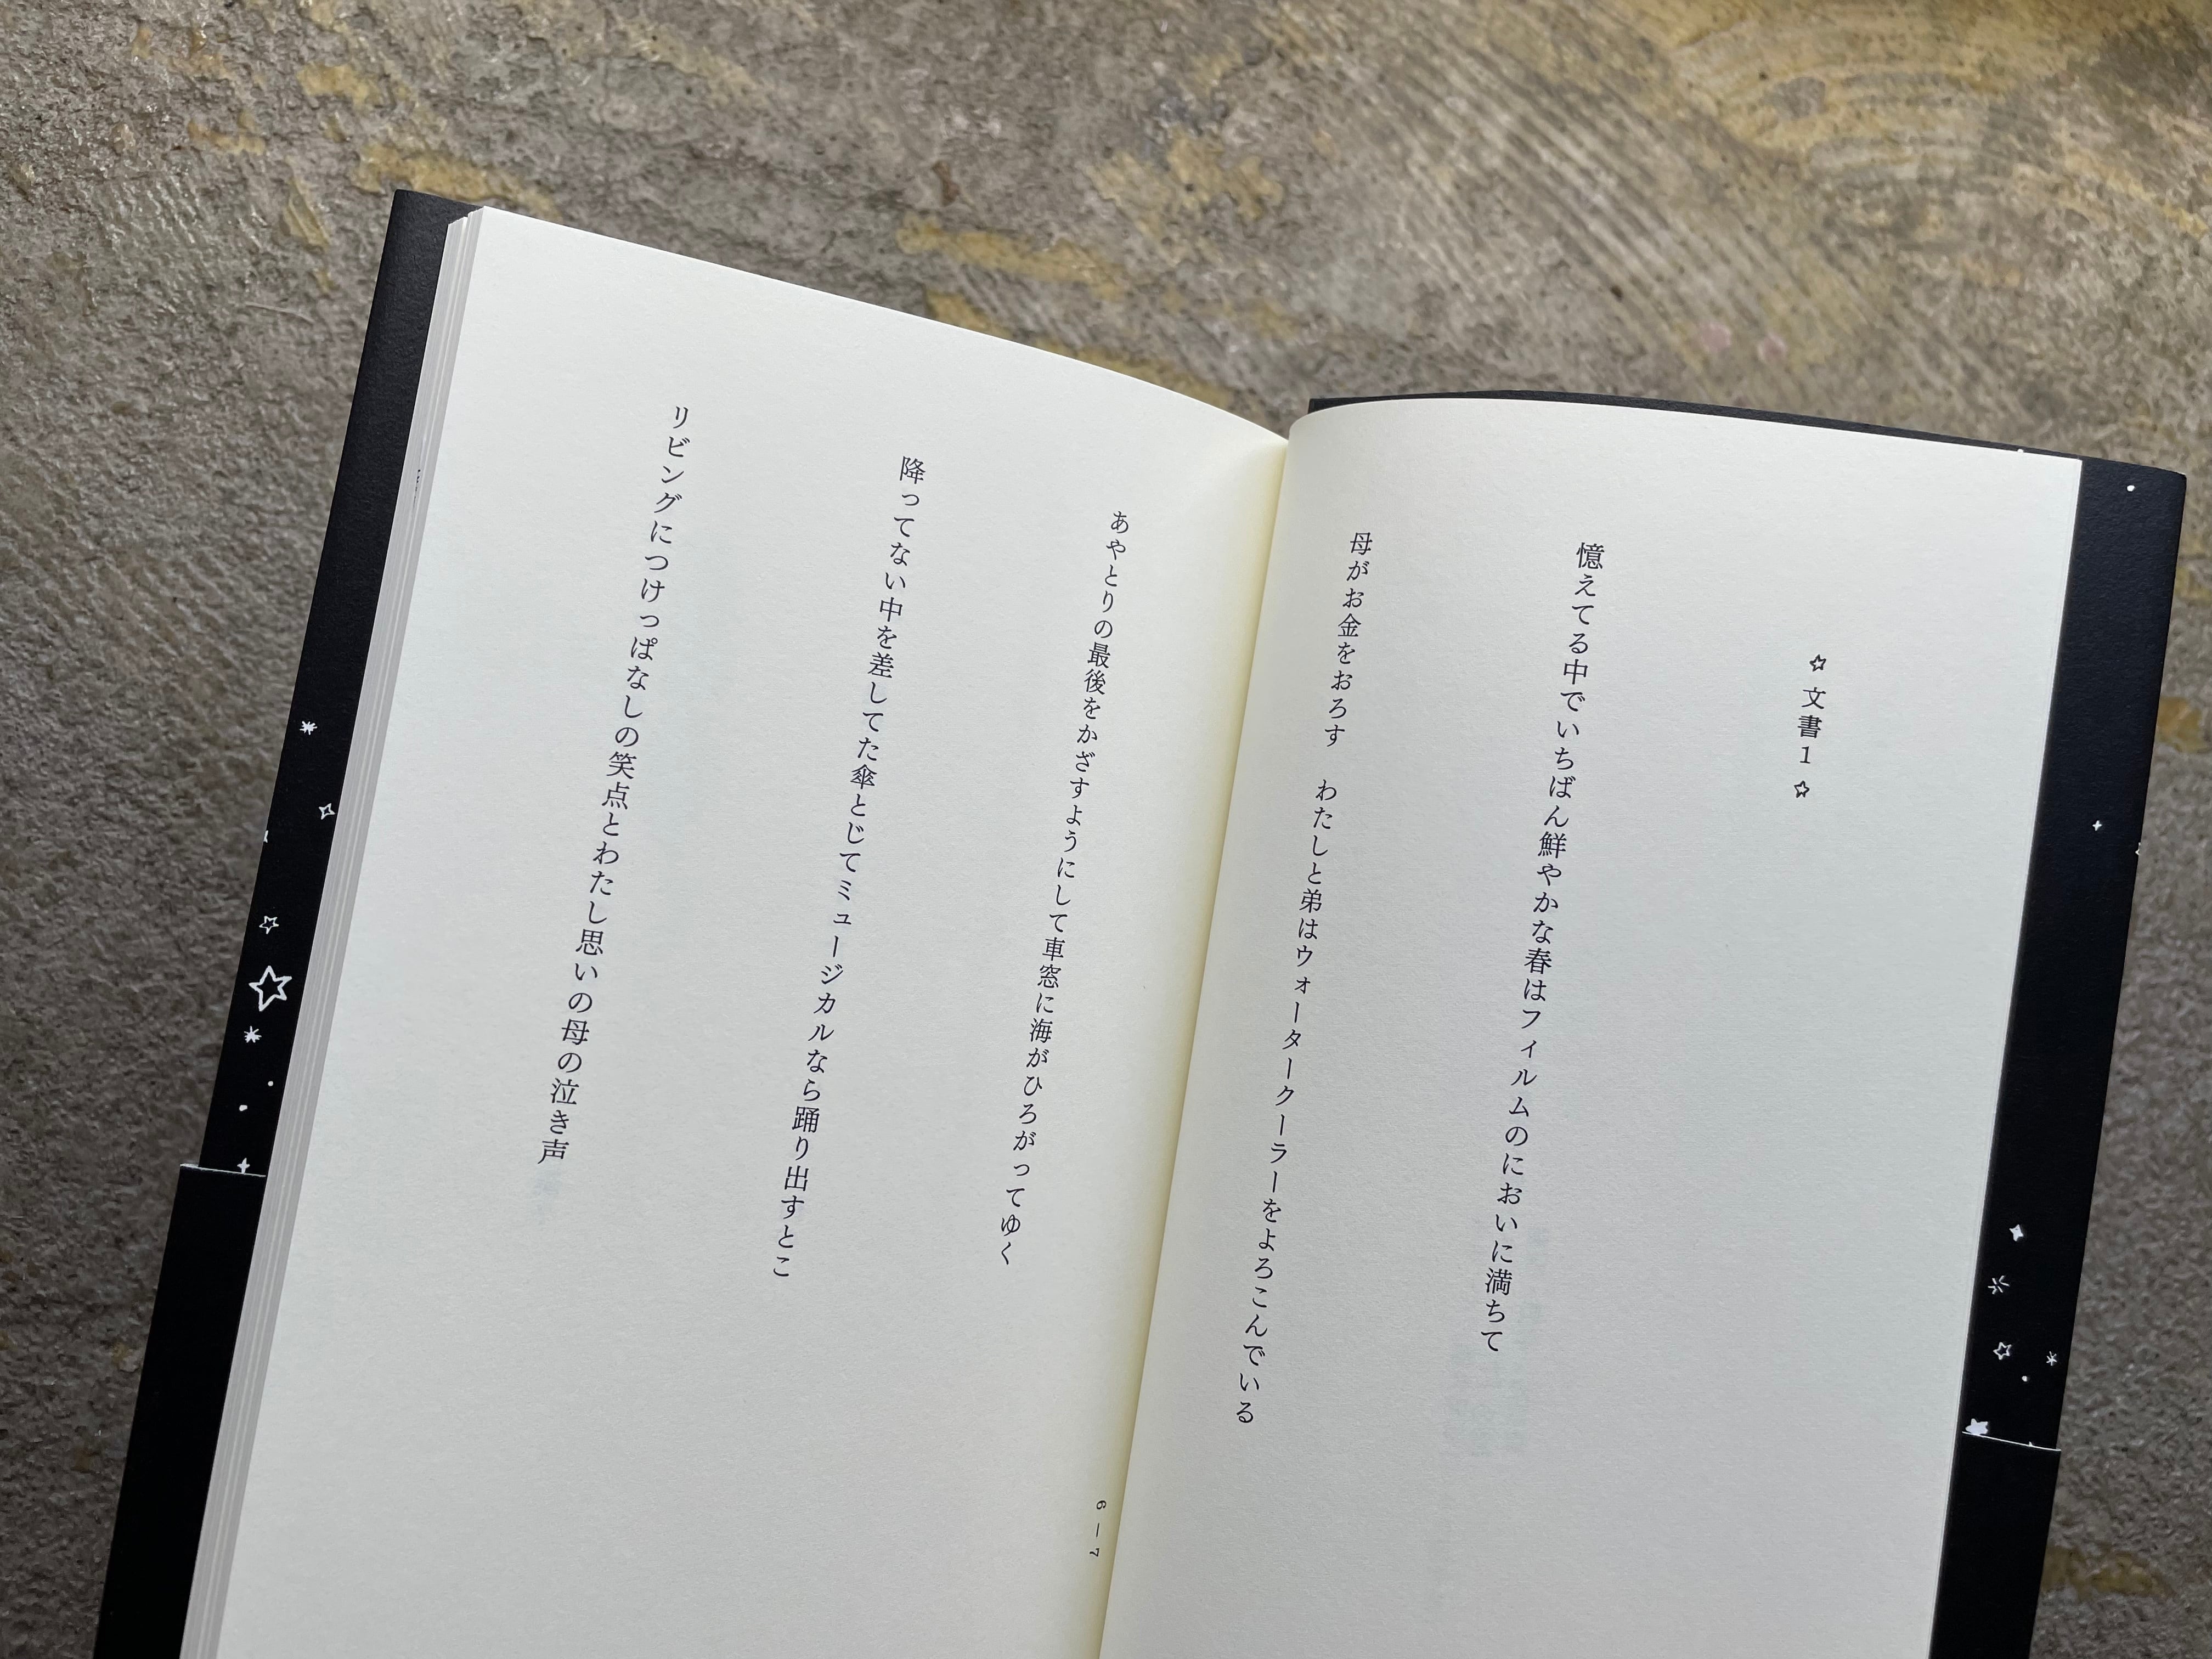 ☆文書1☆
憶えてる中でいちばん鮮やかな春はフィルムのにおいに満ちて
母がお金をおろす　わたしと弟はウォータークーラーをよろこんでいる
あやとりの最後をかざすようにして車窓に海がひろがってゆく
降ってない中を差してた傘とじてミュージカルなら踊り出すとこ
リビングにつけっぱなしの笑点とわたし思いの母の泣き声
6—7